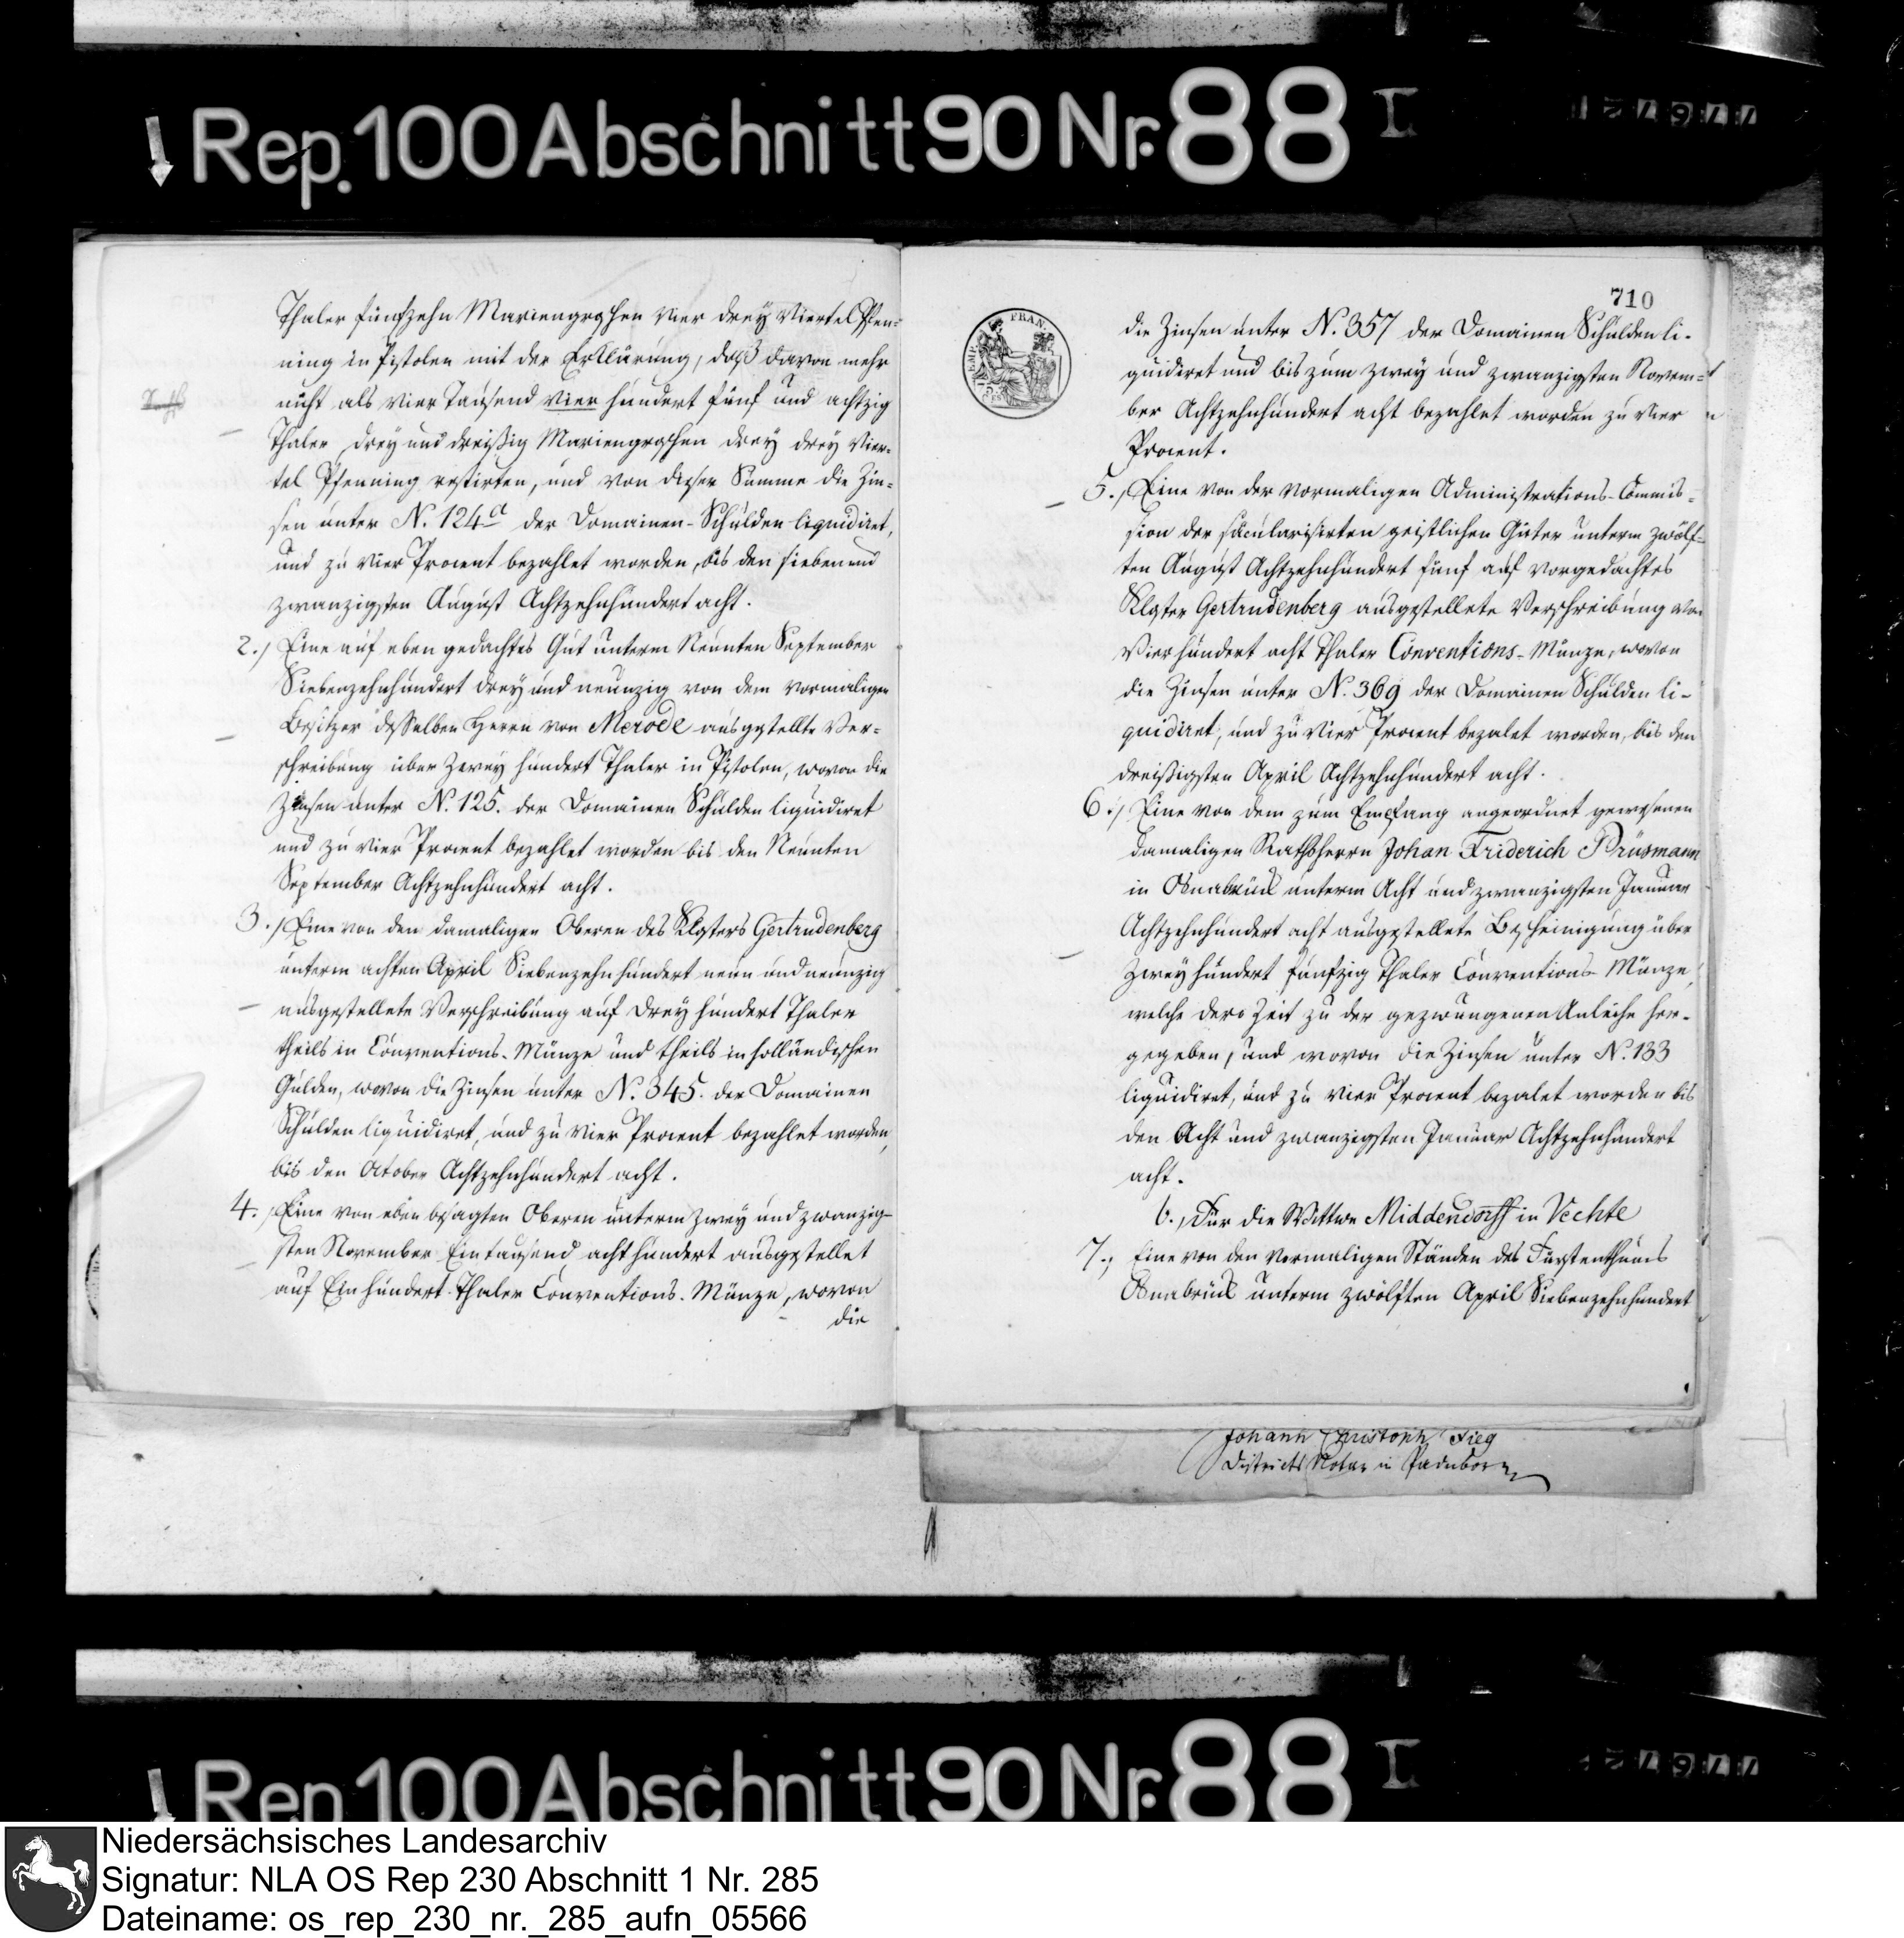 Rep. 100 Abschnitt 90 Nr. 88 I
Thaler funfzehn Mariengroschen vier drey Viertel Pfen-
ning in Pistolen mit der Erklärung, daß davon mehr
nicht als vier Tausend vier hundert fünf und achtzig
Thaler drey und dreißig Mariengroschen drey drey Vier-
tel Pfenning restirten, und von dieser Summe die Zin-
sen unter N. 124a der Domainen-Schulden liquidiret,
und zu vier Procent bezahlet worden, bis den sieben und
zwanzigsten August Achtzehnhundert acht.
2.) Eine auf eben gedachtes Gut unterm Neunten September
Siebenzehnhundert drey und neunzig von dem vormaligen
Besitzer desselben Herrn von Merode ausgestellte Ver-
schreibung über Zwey hundert Thaler in Pistolen, wovon die
Zinsen unter N. 125. der Domainen Schulden liquidiret
und zu vier Procent bezahlet worden bis den Neunten
September Achtzehnhundert acht.
3.) Eine von den damaligen Oberen des Klosters Gertrudenberg
unterm achten April Siebenzehnhundert neun und neunzig
ausgestellete Verschreibung auf Drey hundert Thaler
theils in Conventions-Münze und theils in holländischen
Gulden, wovon die Zinsen unter N. 345. der Domainen
Schulden liquidiret, und zu vier Procent bezahlet worden,
bis den October Achtzehnhundert acht.
4.) Eine von eben besagten Oberen unterm zwey und zwanzig-
sten November Eintausend acht hundert ausgestellet
auf Ein hundert Thaler Conventions-Münze, wovon
die
710
FRAN.
die Zinsen unter N. 357 der Domainen Schulden li-
quidiret und bis zum zwey und zwanzigsten Novem-
ber Achtzehnhundert acht bezahlet worden zu vier
Procent.
5.) Eine von der vormaligen Administrations-Commis-
sion der säcularisirten geistlichen Güter unterm zwölf-
ten August Achtzehnhundert fünf auf vorgedachtes
Kloster Gertrudenberg ausgestellete Verschreibung von
Vierhundert acht Thaler Conventions-Münze, wovon
die Zinsen unter N. 369 der Domainen Schulden li-
quidiret, und zu vier Procent bezalet worden, bis den
dreißigsten April Achtzehnhundert acht.
6.) Eine von dem zum Empfang angeordnet gewesenen
damaligen Rathsherrn Johan Friderich Brüsmann
in Osnabrück unterm Acht und zwanzigsten Januar
Achtzehnhundert acht ausgestellete Bescheinigung über
Zwey hundert funfzig Thaler Conventions-Münze,
welche dero Zeit zu der gezwungenen Anleihe her-
gegeben, und wovon die Zinsen unter N. 133
liquidiret, und zu vier Procent bezalet worden bis
den Acht und zwanzigsten Januar Achtzehnhundert
acht.
b., Für die Wittwe Middendorff in Vechte
7., Eine von den vormaligen Ständen des Fürstenthums
Osnabrück unterm zwölften April Siebenzehnhundert
Johann Christoph Fieg
Districts Notar in Paderborn
Rep. 100 Abschnitt 90 Nr. 88 I
Niedersächsisches Landesarchiv
Signatur: NLA OS Rep 230 Abschnitt 1 Nr. 285
Dateiname: os_rep_230_nr._285_aufn_05566